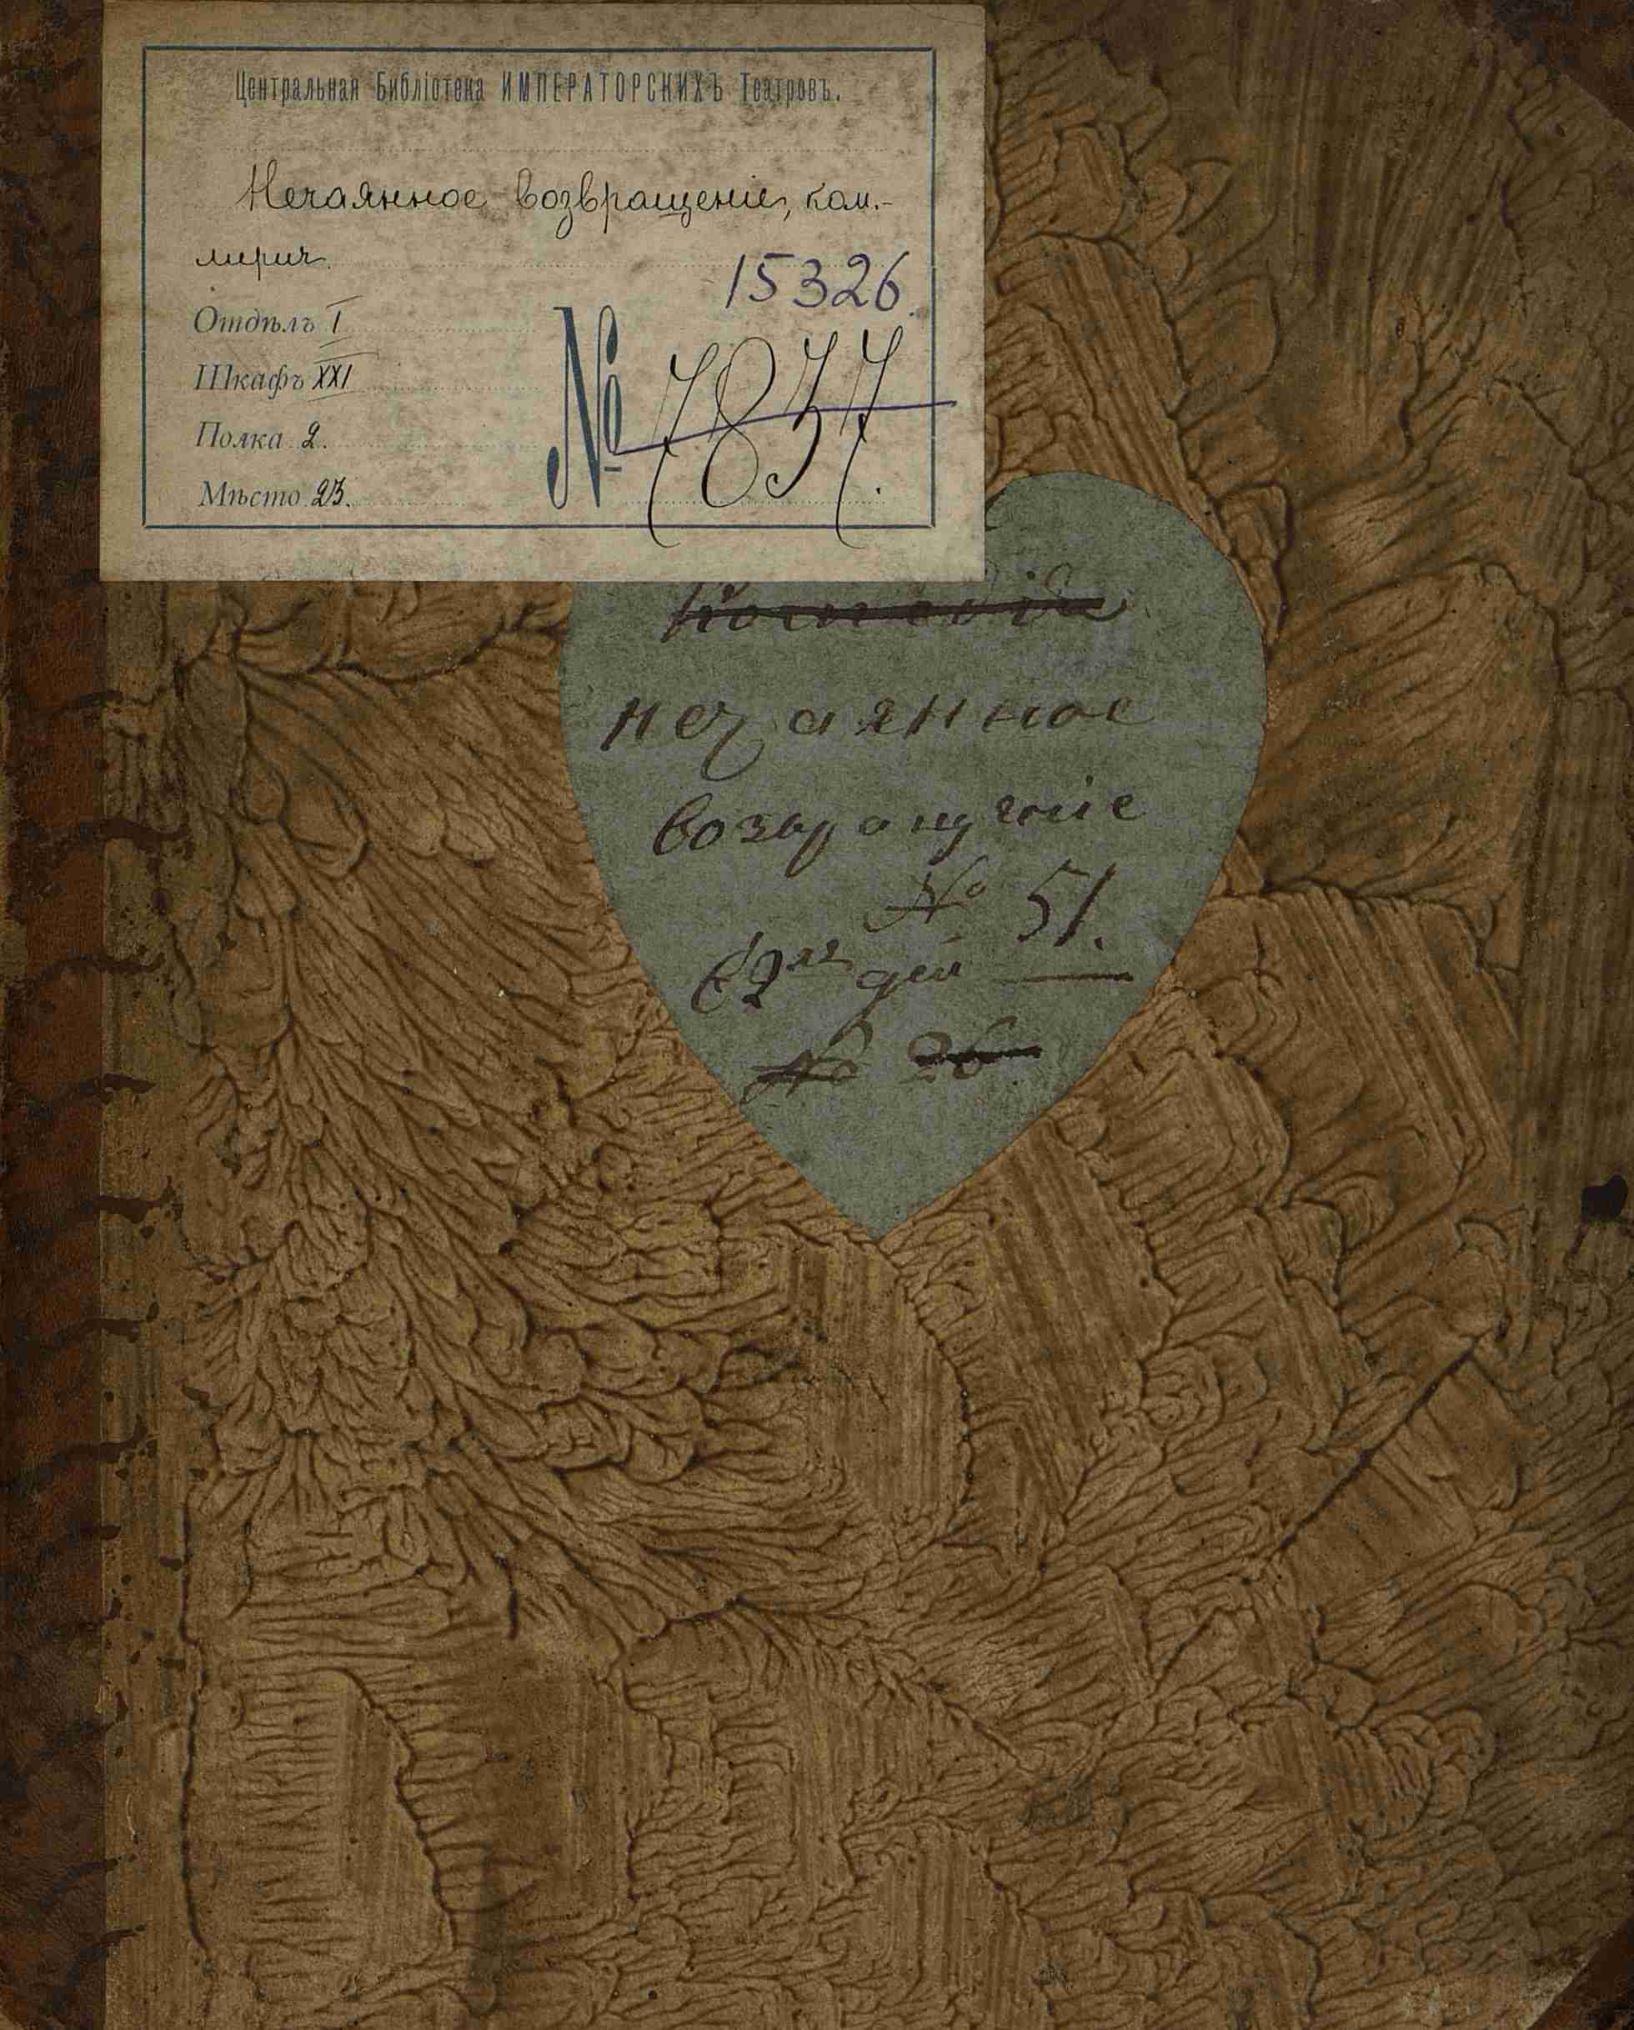 Центральная Библіотека ИМПЕРАТОРСКИХЪ Театровъ.
Нечаянное возвращеніе, ком.-
лирич.
15326.
Отдѣлъ I
Шкафъ XXI
Полка 2.
Мѣсто 23.
№ 7837.
нечаянное
возвращеніе
№ 51.
дей
№ 26